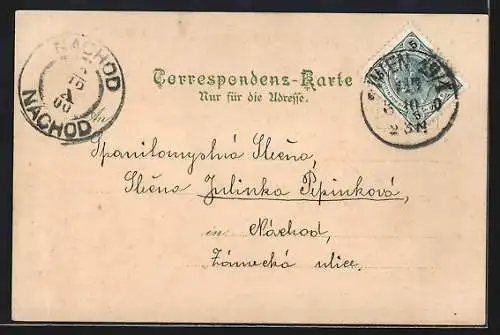 NACHOD
NÁCHOD
Correspondenz-Karte
Nur für die Adresse.
An
WIEN
5
Spanilomyslná Slečna,
Slečna Julinka Pepinková,
in Náchod,
Zámecká ulice.